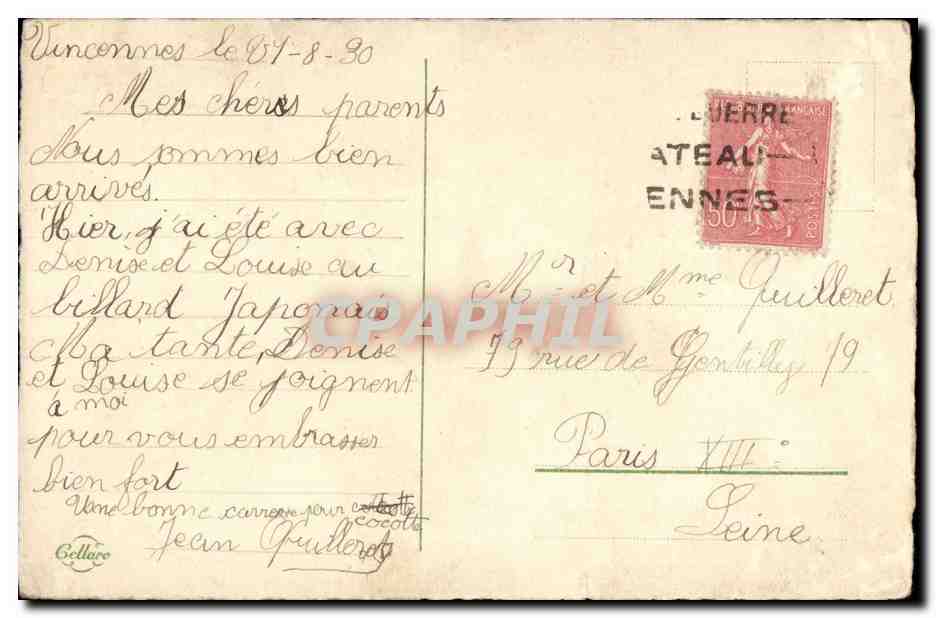 Vincennes le 21-8-30
Mes chers parents
Nous sommes bien
arrivés.
Hier, j'ai été avec
Denise et Louise au
billard Japonais
Ma tante, Denise
et Louise se joignent
à moi
pour vous embrasser
bien fort
Une bonne caresse pour
cocotte
Jean Quilleret
Cellaro
GUERRE
ATEAU
ENNES
FRANÇAISE
50
POSTES
CPAPHIL
Mr et Mme Quilleret
79 rue de Gentilly 19
Paris XIII e
Seine